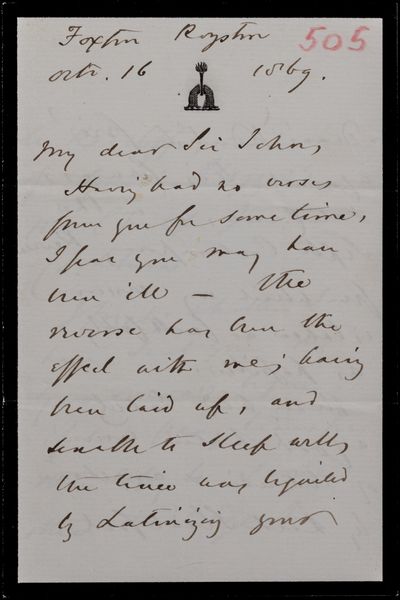 Foxton Royston 505
Octr. 16 1869.
My dear Sir John,
Having had no verses
from you for some time,
I fear you may have
been ill — the
reverse has been the
effect with me; having
been laid up, and
unable to sleep well,
the time was beguiled
by Latinizing your